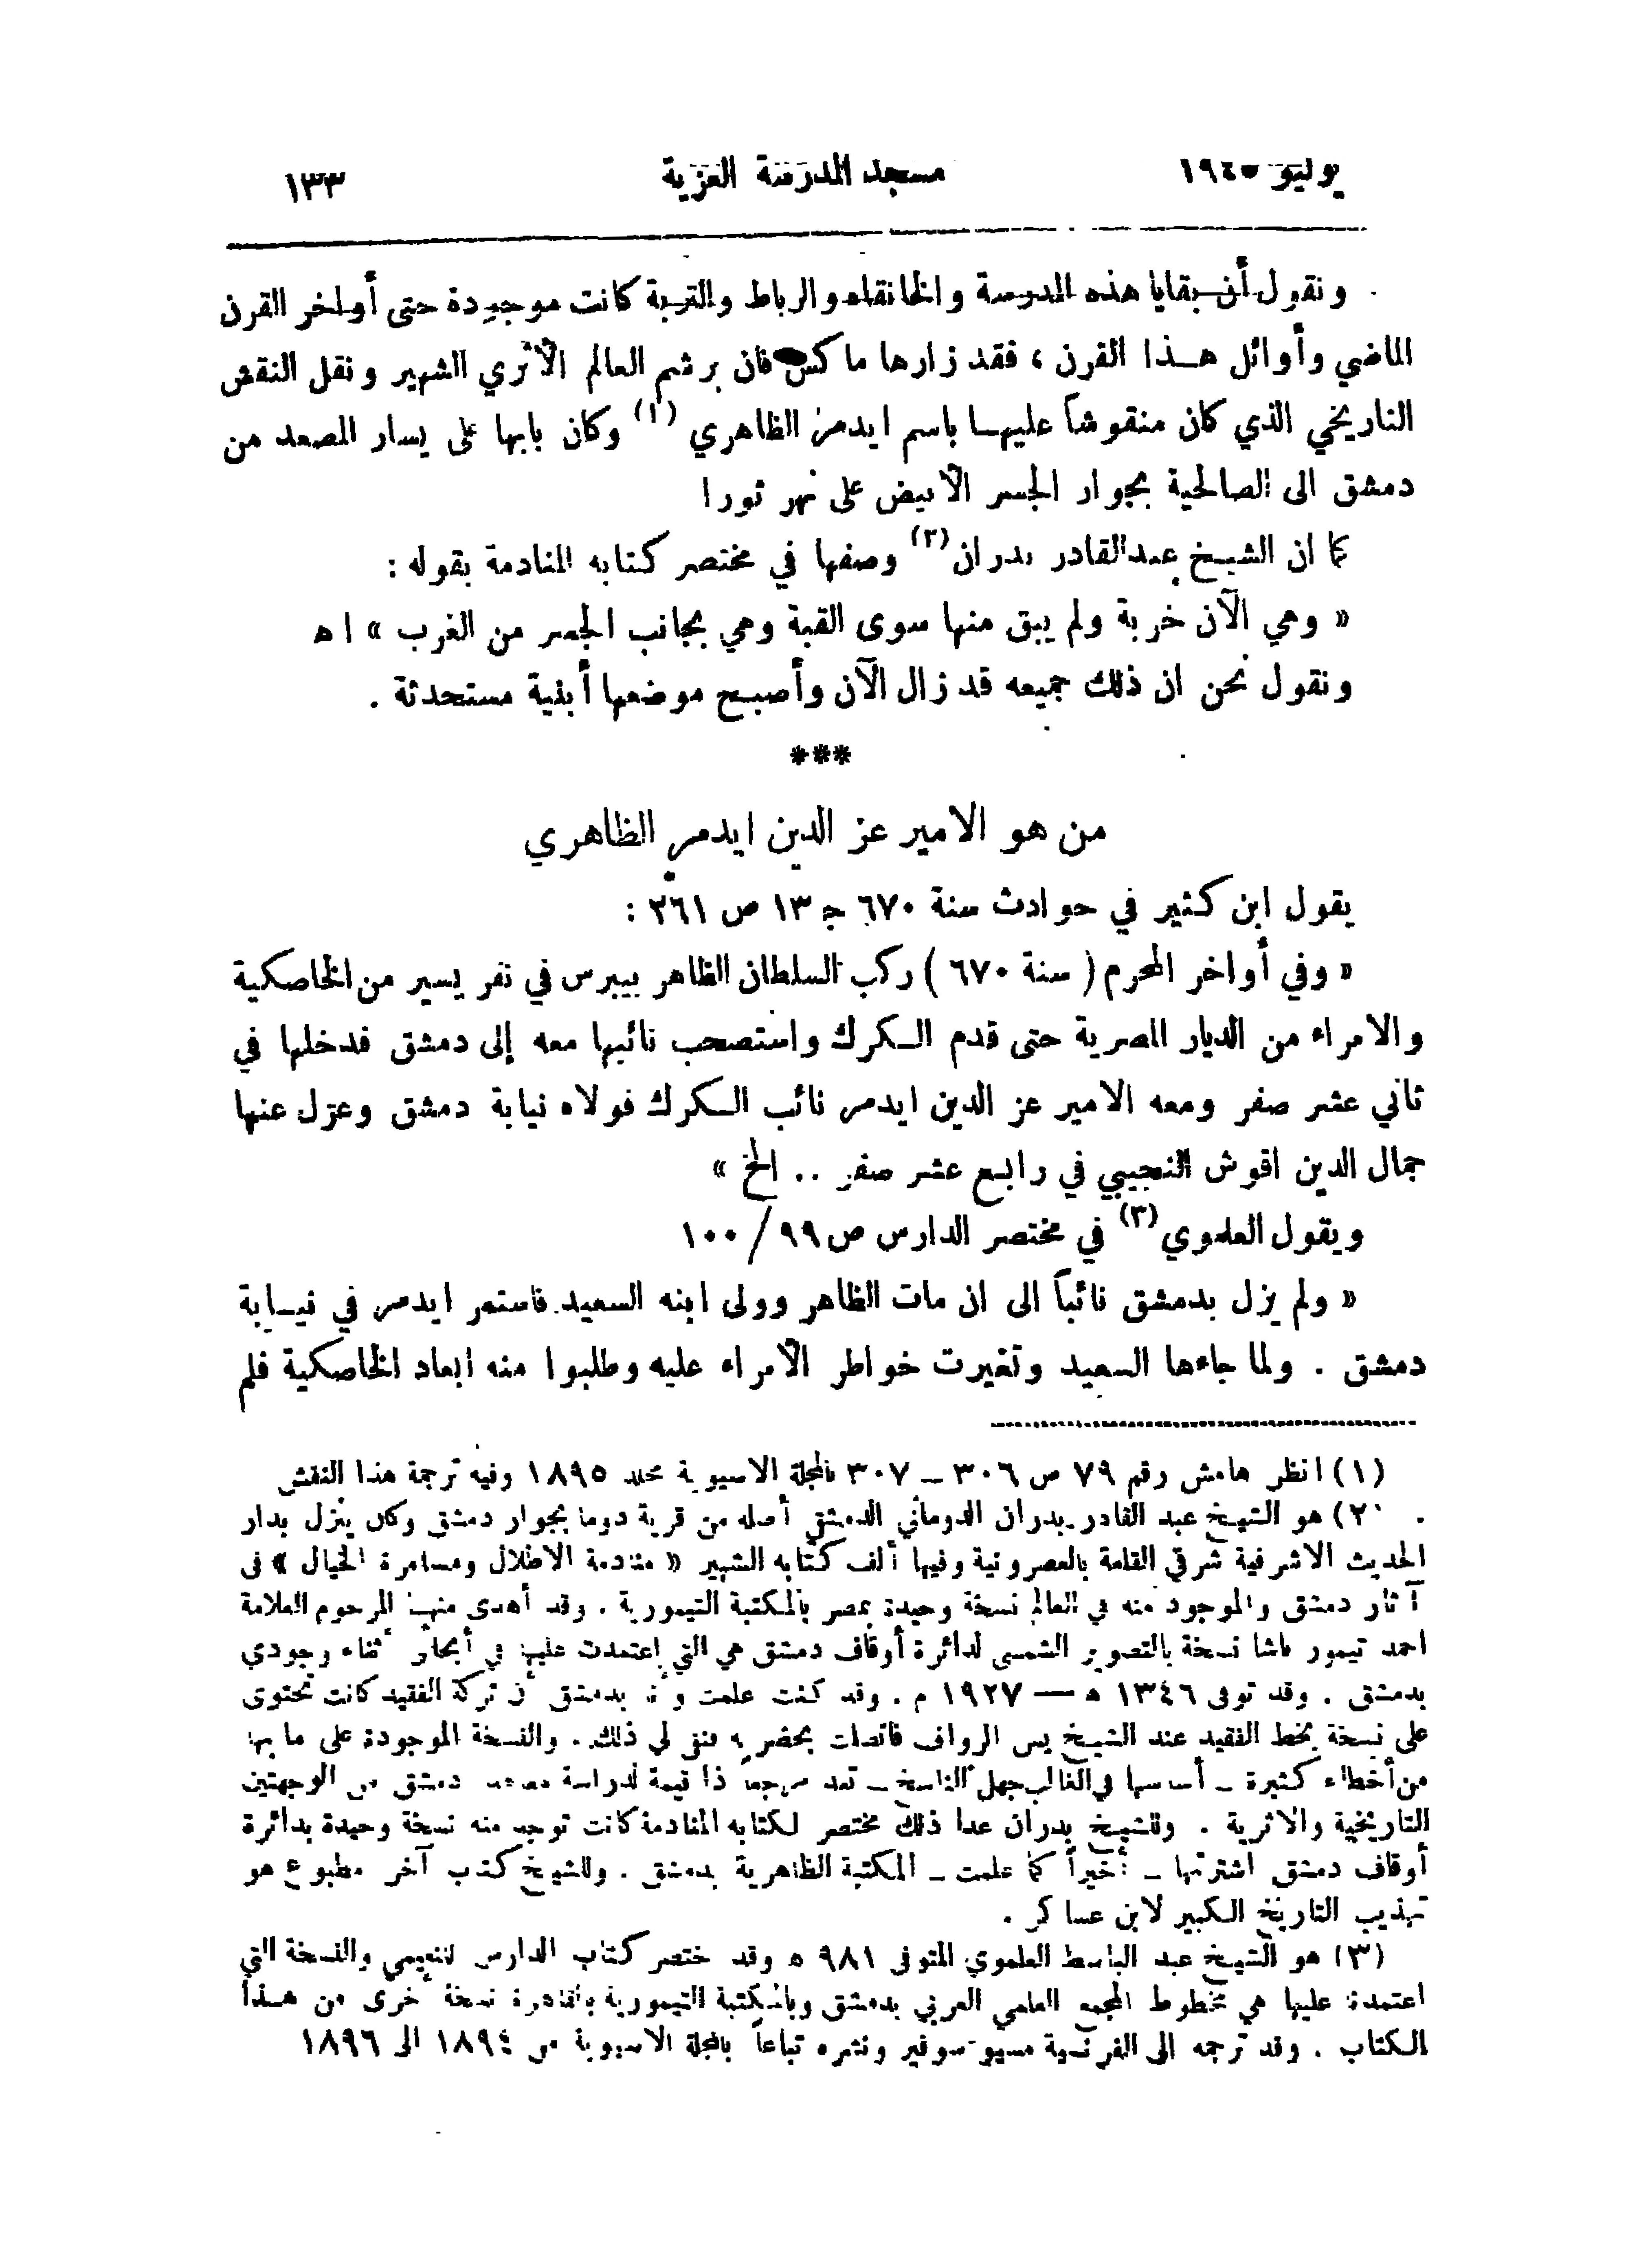 يوليو ١٩٤٥ مسجد المدرسة العزية ١٣٣
ونقول أن بقايا هذه المدرسة والخانقاه والرباط والتربة كانت موجودة حتى أواخر القرن
الماضي وأوائل هذا القرن ، فقد زارها ماكس فان برشم العالم الأثري الشهير ونقل النقش
التاريخي الذي كان منقوشاً عليها باسم ايدمر الظاهري (١) وكان بابها على يسار المصعد من
دمشق الى الصالحية بجوار الجسر الأبيض على نهر ثورا
كما ان الشيخ عبدالقادر بدران (٢) وصفها في مختصر كتابه المنادمة بقوله :
« وهي الآن خربة ولم يبق منها سوى القبة وهي بجانب الجسر من الغرب » ا ه
ونقول نحن ان ذلك جميعه قد زال الآن وأصبح موضعها أبنية مستحدثة .
***
من هو الامير عز الدين ايدمر الظاهري
يقول ابن كثير في حوادث سنة ٦٧٠ ج ١٣ ص ٢٦١ :
« وفي أواخر المحرم ( سنة ٦٧٠ ) ركب السلطان الظاهر بيبرس في نفر يسير من الخاصكية
والامراء من الديار المصرية حتى قدم الكرك واستصحب نائبها معه إلى دمشق فدخلها في
ثاني عشر صفر ومعه الامير عز الدين ايدمر نائب الكرك فولاه نيابة دمشق وعزل عنها
جمال الدين اقوش النجيبي في رابع عشر صفر .. الخ »
ويقول العلموي (٣) في مختصر الدارس ص ٩٩ / ١٠٠
« ولم يزل بدمشق نائباً الى ان مات الظاهر وولى ابنه السعيد فاستمر ايدمر في نيابة
دمشق . ولما جاءها السعيد وتغيرت خواطر الأمراء عليه وطلبوا منه ابعاد الخاصكية فلم
(١) انظر هامش رقم ٧٩ ص ٣٠٦ – ٣٠٧ بالمجلة الاسيوية مجلد ١٨٩٥ وفيه ترجمة هذا النقش
(٢) هو الشيخ عبد القادر بدران الدوماني الدمشقي أصله من قرية دوما بجوار دمشق وكان ينزل بدار
الحديث الاشرفية شرقي القلعة بالعصرونية وفيها ألف كتابه الشهير « منادمة الاطلال ومسامرة الخيال » في
آثار دمشق والموجود منه في العالم نسخة وحيدة بمصر بالمكتبة التيمورية . وقد أهدى منها المرحوم العلامة
احمد تيمور باشا نسخة بالتصوير الشمسي لدائرة أوقاف دمشق هي التي اعتمدت عليها في أبحاثي أثناء وجودي
بدمشق . وقد توفى ١٣٤٦ ه — ١٩٢٧ م . وقد كنت علمت وأنا بدمشق أن تركة الفقيد كانت تحتوى
على نسخة بخط الفقيد عند الشيخ يس الرواف فاتصلت بحضرته فنفى لي ذلك . والنسخة الموجودة على ما بها
من أخطاء كثيرة – أساسها في الغالب جهل الناسخ – تعد مرجعاً ذا قيمة لدراسة دمشق من الوجهتين
التاريخية والاثرية . وللشيخ بدران عدا ذلك مختصر لكتابه المنادمة كانت توجد منه نسخة وحيدة بدائرة
أوقاف دمشق اشترتها – أخيراً كما علمت – المكتبة الظاهرية بدمشق . وللشيخ كتاب آخر مطبوع هو
تهذيب التاريخ الكبير لابن عساكر .
(٣) هو الشيخ عبد الباسط العلموي المتوفى ٩٨١ ه وقد اختصر كتاب الدارس للنعيمي والنسخة التي
اعتمدنا عليها هي مخطوط المجمع العلمي العربي بدمشق وبالمكتبة التيمورية بالقاهرة نسخة أخرى من هذا
الكتاب . وقد ترجمه الى الفرنسية مسيو سوفير ونشره تباعاً بالمجلة الاسيوية من ١٨٩٤ الى ١٨٩٦